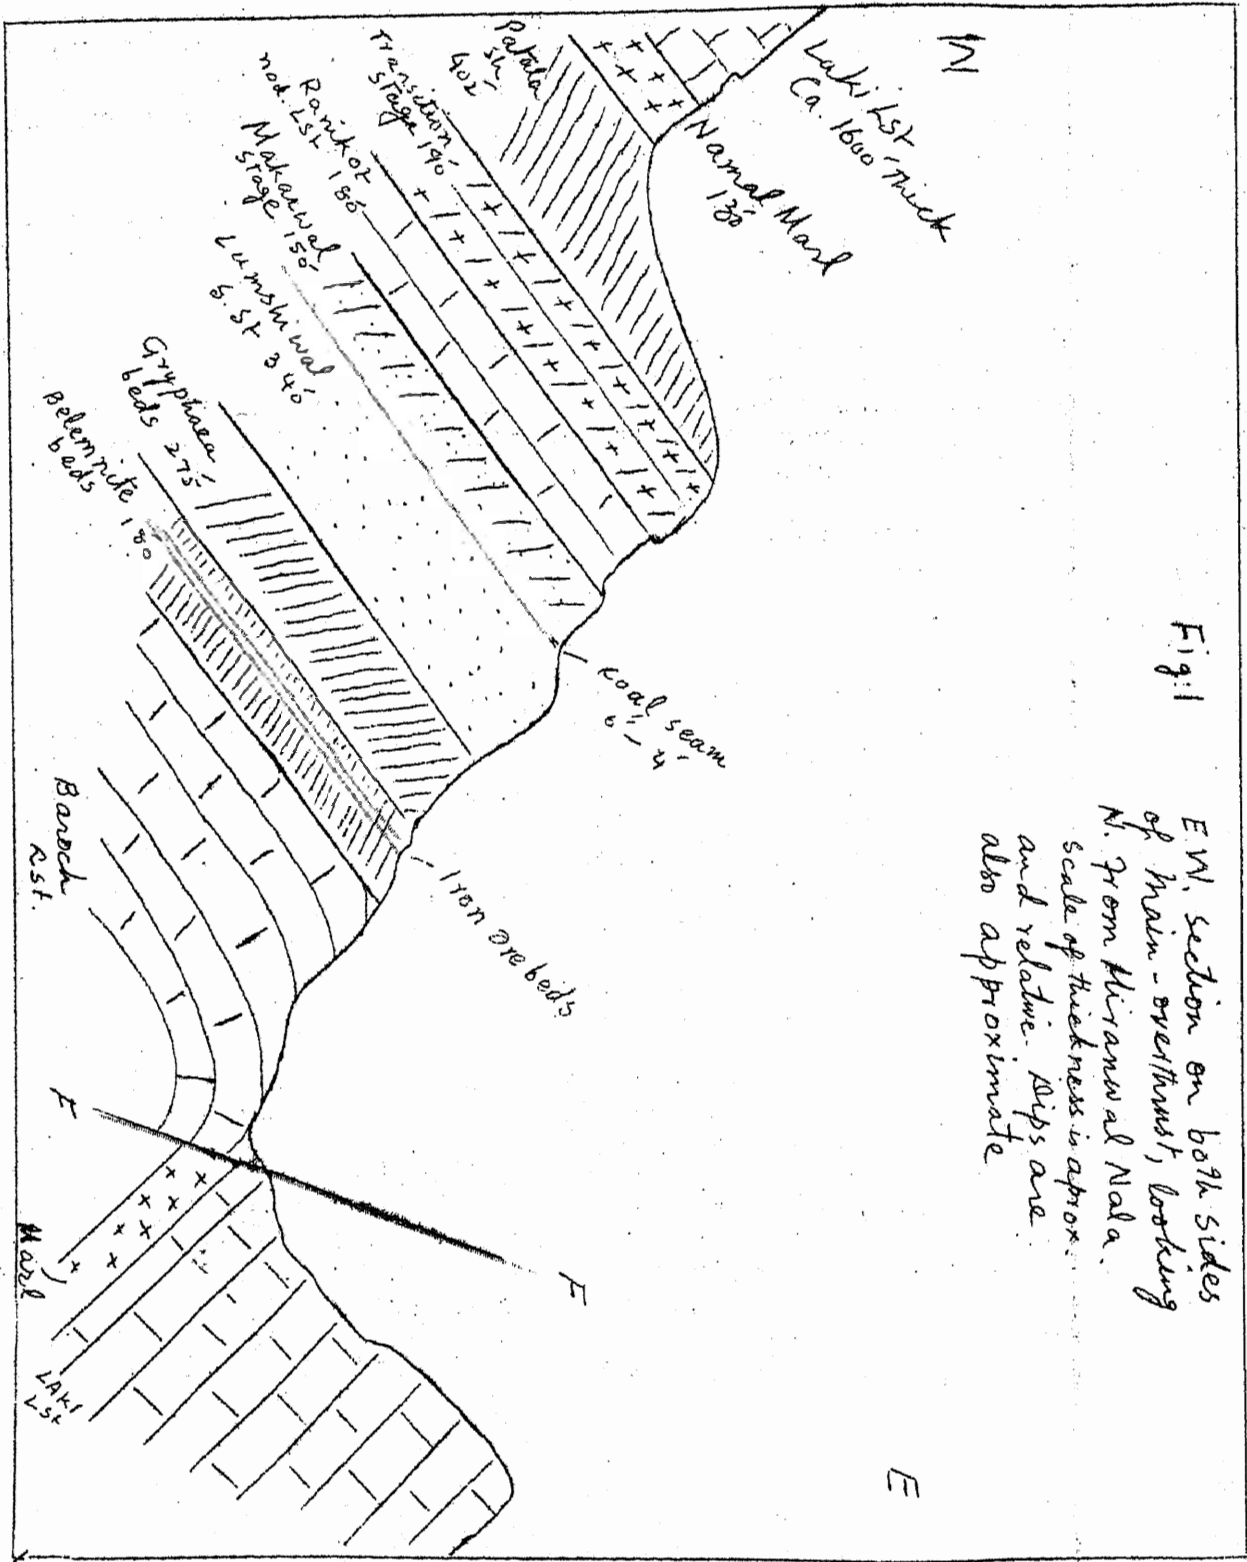 Fig:1
E.W. section on both sides
of Main-overthrust, looking
N. From Miranwal Nala.
Scale of thickness is aprox.
and relative. Dips are
also approximate
W
E
Laki Lst
Ca. 1600' Thick
Namal Marl
130'
Patala
Sh,
402'
Transition
stage 190'
Ranikot
nod. Lst 186'
Makarwal
stage 150'
Lumshiwal
S.St 340'
Gryphaea
beds 275'
Belemnite
beds 180
Koal seam
Iron ore beds
Baroch
Lst.
F
F
Marl
LAKI
Lst